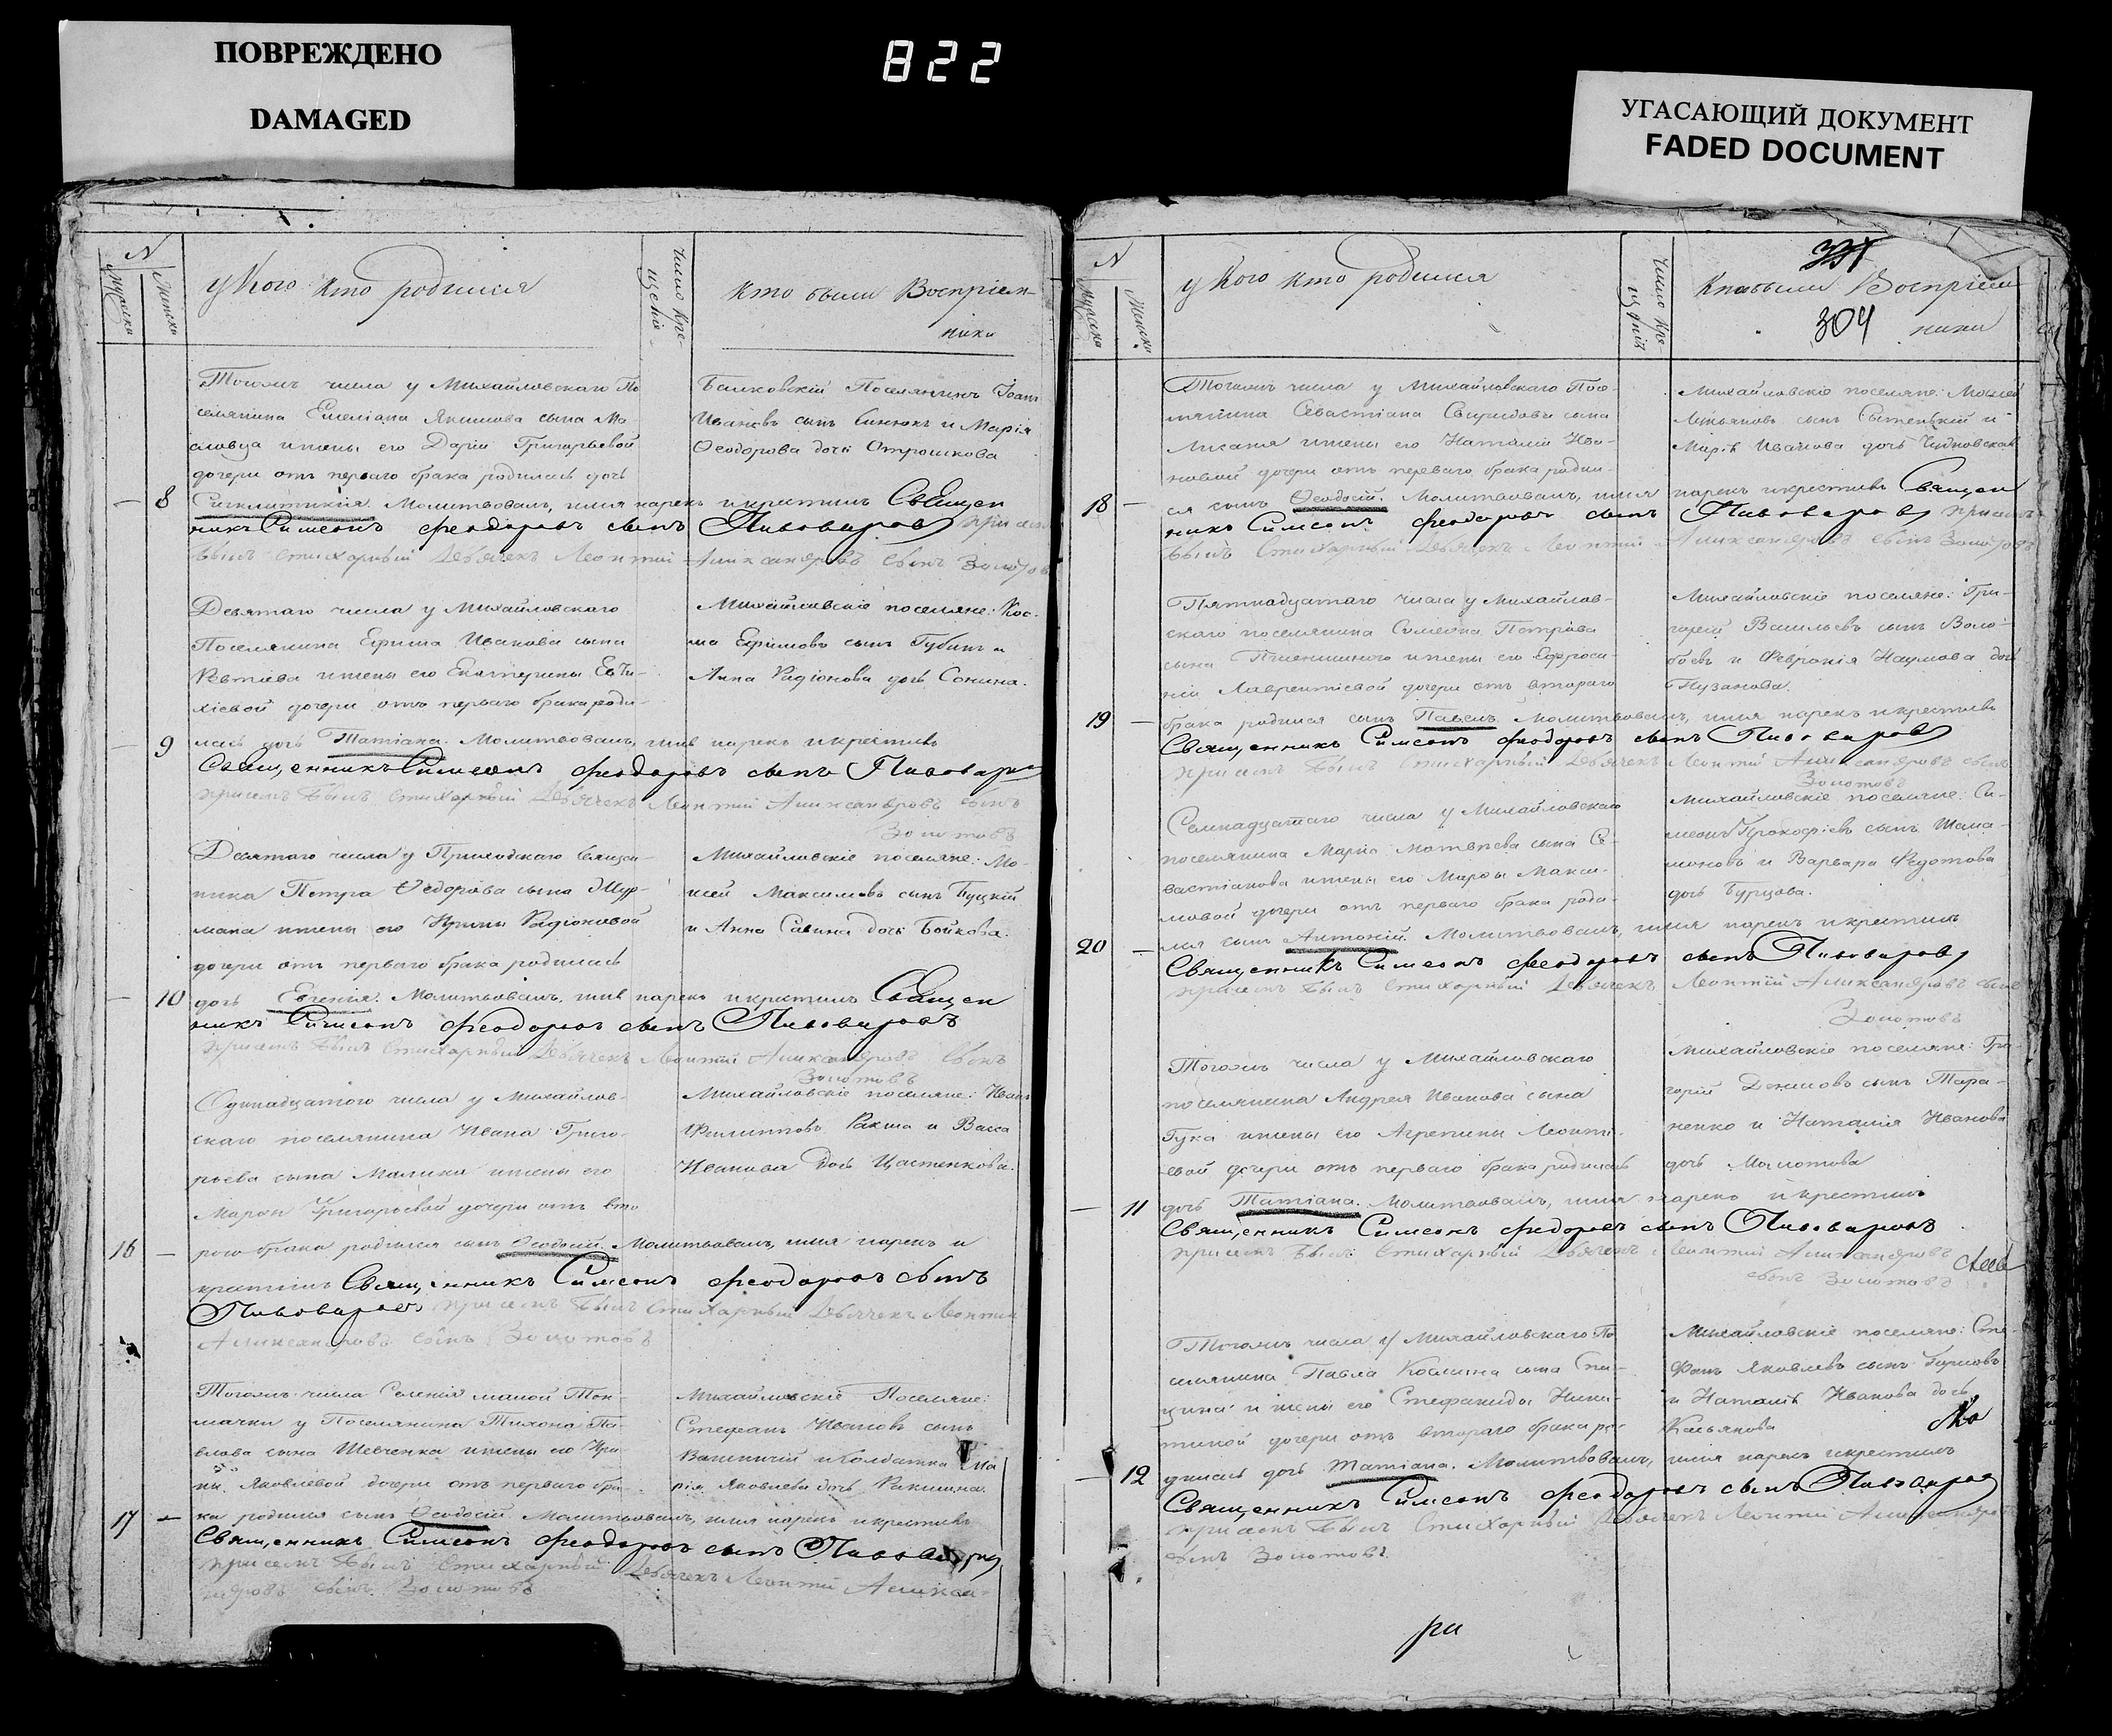 ПОВРЕЖДЕНО
DAMAGED
822
УГАСАЮЩИЙ ДОКУМЕНТ
FADED DOCUMENT
N
Мужска
Женска
у Кого кто родился
число Кре-
щенiе
кто были Воспрiем-
ники
Тогожъ числа у Михайловскаго По
селянина Емелiана Якимова сына Ма-
словца и жены его Дарiи Григорьевой
дочери отъ перваго брака родилась дочь
8 Синклитикiя. Молитвовалъ, имя нарекъ и крестилъ Священ
никъ Симеонъ Феодоровъ сынъ Пивоваровъ при семъ
былъ стихарный Дьячекъ Леонтiй Александровъ сынъ Золотовъ
Поселянинъ Iоанн
Ивановъ сынъ и Марiя
Феодорова дочь Отрошкова
Девятаго числа у Михайловскаго
Поселянина Ефима Иванова сына
Ревтiева и жены его Екатерины Евти-
хiевой дочери отъ перваго брака роди-
9 лась дочь Татiана. Молитвовалъ, имя нарекъ и крестилъ
Священникъ Симеонъ Феодоровъ сынъ Пивоваровъ
при семъ былъ стихарный Дьячекъ Леонтiй Александровъ сынъ
Золотовъ
Михайловскiе поселяне: Кос-
ма Ефимовъ сынъ Губинъ и
Анна Радiонова дочь Сонина.
Девятаго числа у Приходскаго Священ-
ника Петра Феодорова сына Шур-
мана и жены его Ирины Радiоновой
дочери отъ перваго брака родилась
10 дочь Евгенiя. Молитвовалъ, имя нарекъ и крестилъ Священ
никъ Симеонъ Феодоровъ сынъ Пивоваровъ
при семъ былъ стихарный Дьячекъ Леонтiй Александровъ сынъ
Золотовъ
Михайловскiе поселяне: Мо-
исей Максимовъ сынъ Буцкiй
и Анна Савина дочь Бойкова.
Одинадцатого числа у Михайлов-
скаго поселянина Ивана Григо-
рьева сына Малика и жены его
Марфы Григорьевой дочери отъ вто
16 рого брака родился сынъ Феодосiй. Молитвовалъ, имя нарекъ и
крестилъ Священникъ Симеонъ Феодоровъ сынъ
Пивоваровъ при семъ былъ стихарный Дьячекъ Леонтiй
Александровъ сынъ Золотовъ
Михайловскiе поселяне: Иванъ
Филиповъ Ракша и Васса
Иванова дочь Цастенкова.
Тогожъ числа Селенiя малой Ток-
мачки у Поселянина Тихона Па-
влова сына Шевченка и жены его Ири
ны Яковлевой дочери отъ перваго бра-
17 ка родился сынъ Феодосiй. Молитвовалъ, имя нарекъ и крестилъ
Священникъ Симеонъ Феодоровъ сынъ Пивоваровъ
при семъ былъ стихарный Дьячекъ Леонтiй Алексан-
дровъ сынъ Золотовъ
Михайловскiе Поселяне:
Стефанъ Ивановъ сынъ
и солдатка Ма
рiя Яковлева дочь Ракшина.
N
Мужска
Женска
у Кого кто родился
число Кре-
щенiй
331
Кто были Воспрiем
304
ники
Тогожъ числа у Михайловскаго Посе-
лянина Севастiана Свиридова сына
Лисаня и жены его Наталiи Ива-
новой дочери отъ перваго брака родил-
18 ся сынъ Феодосiй. Молитвовалъ, имя нарекъ и крестилъ Священ
никъ Симеонъ Феодоровъ сынъ Пивоваровъ при семъ
былъ Стихарный Дьячекъ Леонтiй Александровъ сынъ Золотовъ
Михайловскiе поселяне: Моисей
сынъ и
Марiя Иванова дочь Чудновская
Пятнадцатаго числа у Михайлов-
скаго поселянина Симеона Петрова
сына Пшеничного и жены его Ефроси-
нiи Лаврентiевой дочери отъ втораго
19 брака родился сынъ Павелъ. Молитвовалъ, имя нарекъ и крестилъ
Священникъ Симеонъ Феодоровъ сынъ Пивоваровъ
при семъ былъ Стихарный Дьячекъ Леонтiй Александровъ сынъ
Золотовъ
Михайловскiе поселяне: Гри-
горiй Васильевъ сынъ Воло-
боевъ и Февронiя Наумова дочь
Пузанова.
Семнадцатаго числа у Михайловскаго
поселянина Марка Матвѣева сына Се-
вастiанова и жены его Марфы Макси-
мовой дочери отъ перваго брака роди-
20 лся сынъ Антонiй. Молитвовалъ, имя нарекъ и крестилъ
Священникъ Симеонъ Феодоровъ сынъ Пивоваровъ
при семъ былъ Стихарный Дьячекъ Леонтiй Александровъ сынъ
Золотовъ
Михайловскiе поселяне: Си-
меонъ Прокофiевъ сынъ Шама-
моновъ и Варвара Федотова
дочь Бурцова.
Тогожъ числа у Михайловскаго
поселянина Андрея Иванова сына
Гука и жены его Агрепины Леонтi-
евой дочери отъ перваго брака родилась
11 дочь Татiана. Молитвовалъ, имя нарекъ и крестилъ
Священникъ Симеонъ Феодоровъ сынъ Пивоваровъ
при семъ былъ Стихарный Дьячекъ Леонтiй Александровъ
сынъ Золотовъ
Михайловскiе поселяне: Гри-
горiй Денисовъ сынъ Тара-
ненко и Наталiя Иванова
дочь Молотова
Тогожъ числа у Михайловскаго По
селянина Павла Космина сына Спи-
цина и жены его Стефаниды Ники-
тиной дочери отъ втораго брака ро-
12 дилась дочь Татiана. Молитвовалъ, имя нарекъ и крестилъ
Священникъ Симеонъ Феодоровъ сынъ Пивоваровъ
при семъ былъ Стихарный Дьячекъ Леонтiй Александровъ
сынъ Золотовъ.
Михайловскiе поселяне: Сте-
фанъ Яковлевъ сынъ
и Наталiя Иванова дочь
Касьянова
ри